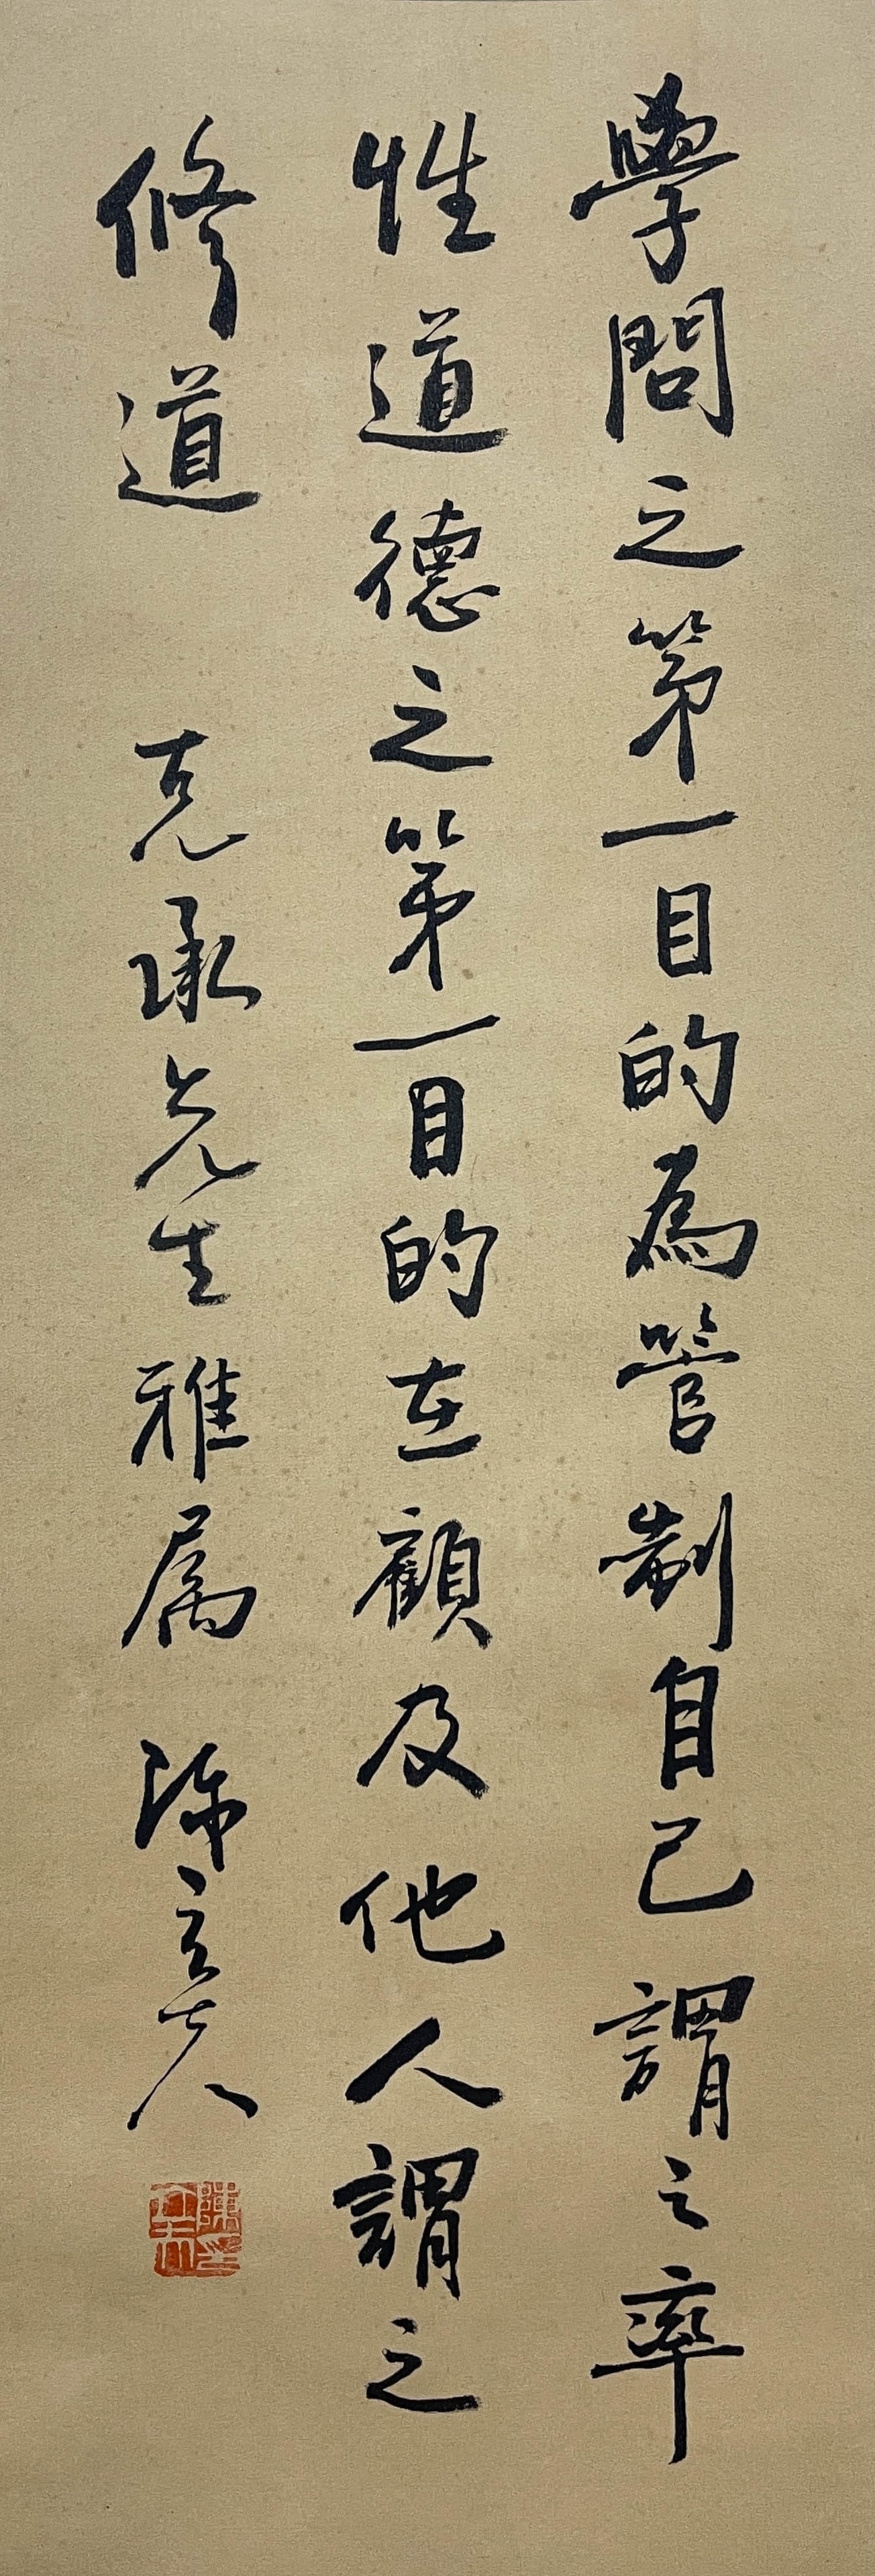 學問之第一目的為管制自己謂之率
性道德之第一目的在顧及他人謂之
修道 克承先生雅屬 陳立夫